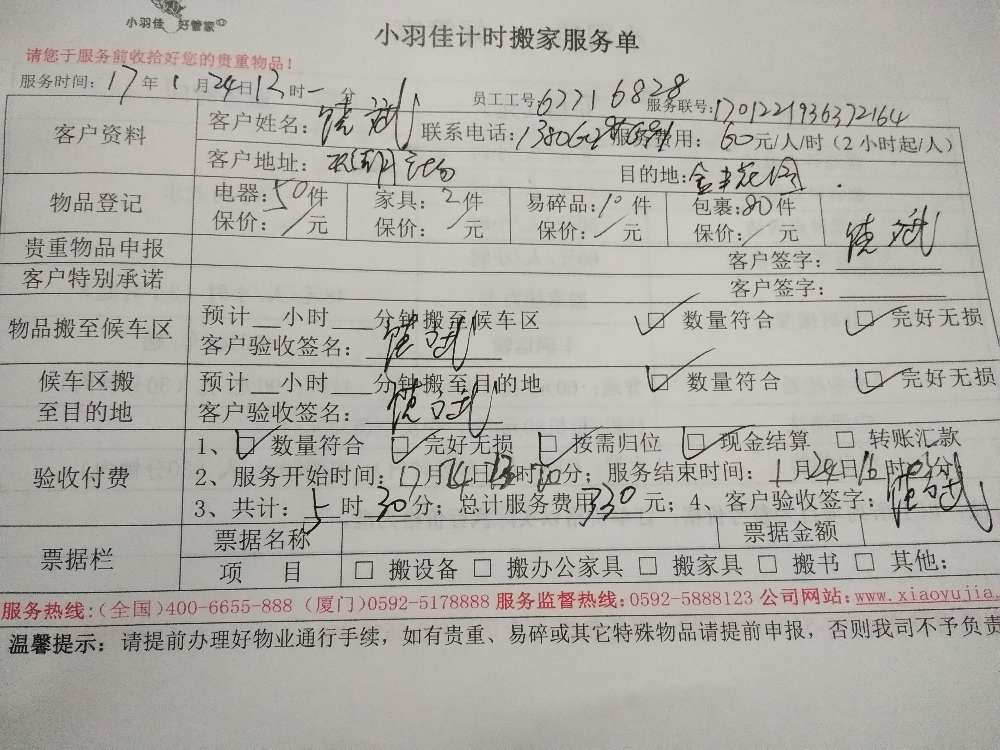 小羽佳 好管家
小羽佳计时搬家服务单
请您于服务前收拾好您的贵重物品！
服务时间：17年1月24日12时一分 员工工号67716828 服务联号：1701221936372164
客户资料 客户姓名： 联系电话： 服务费用：60元/人/时（2小时起/人）
客户地址： 目的地：
物品登记 电器：50件 家具：2件 易碎品：10件 包裹：80件
保价：/元 保价：/元 保价：/元 保价：/元
贵重物品申报 客户签字：
客户特别承诺 客户签字：
物品搬至候车区 预计__小时___分钟搬至候车区 ☑ 数量符合 ☑ 完好无损
客户验收签名：
候车区搬至目的地 预计__小时___分钟搬至目的地 ☑ 数量符合 ☑ 完好无损
客户验收签名：
验收付费 1、☑ 数量符合 ☑ 完好无损 ☑ 按需归位 ☑ 现金结算 □ 转账汇款
2、服务开始时间：月24日时分；服务结束时间：1月24日16时分
3、共计：5时30分；总计服务费用330元；4、客户验收签字：
票据栏 票据名称 票据金额
项 目 □ 搬设备 □ 搬办公家具 □ 搬家具 □ 搬书 □ 其他：
服务热线：（全国）400-6655-888（厦门）0592-5178888 服务监督热线：0592-5888123 公司网站：www.xiaoyujia.
温馨提示：请提前办理好物业通行手续，如有贵重、易碎或其它特殊物品请提前申报，否则我司不予负责